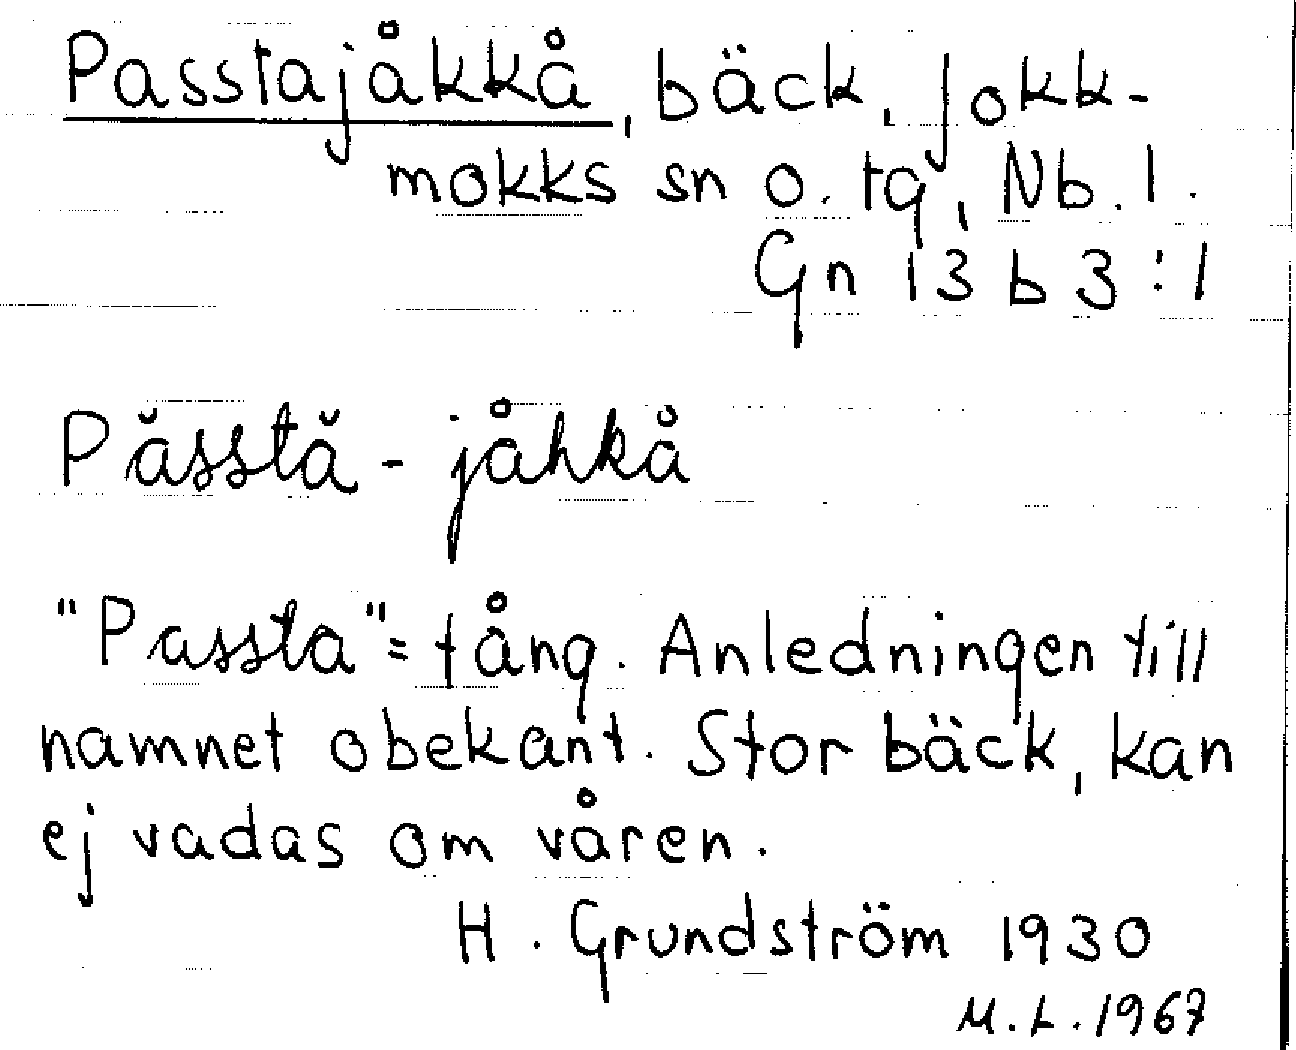 Passtajåkkå, bäck, Jokk-
mokks sn o. tg, Nb. l.
Gn 13 b 3:1
Păsstă - jåhkå
"Passta" = tång. Anledningen till
namnet obekant. Stor bäck, kan
ej vadas om våren.
H. Grundström 1930
M.L. 1967